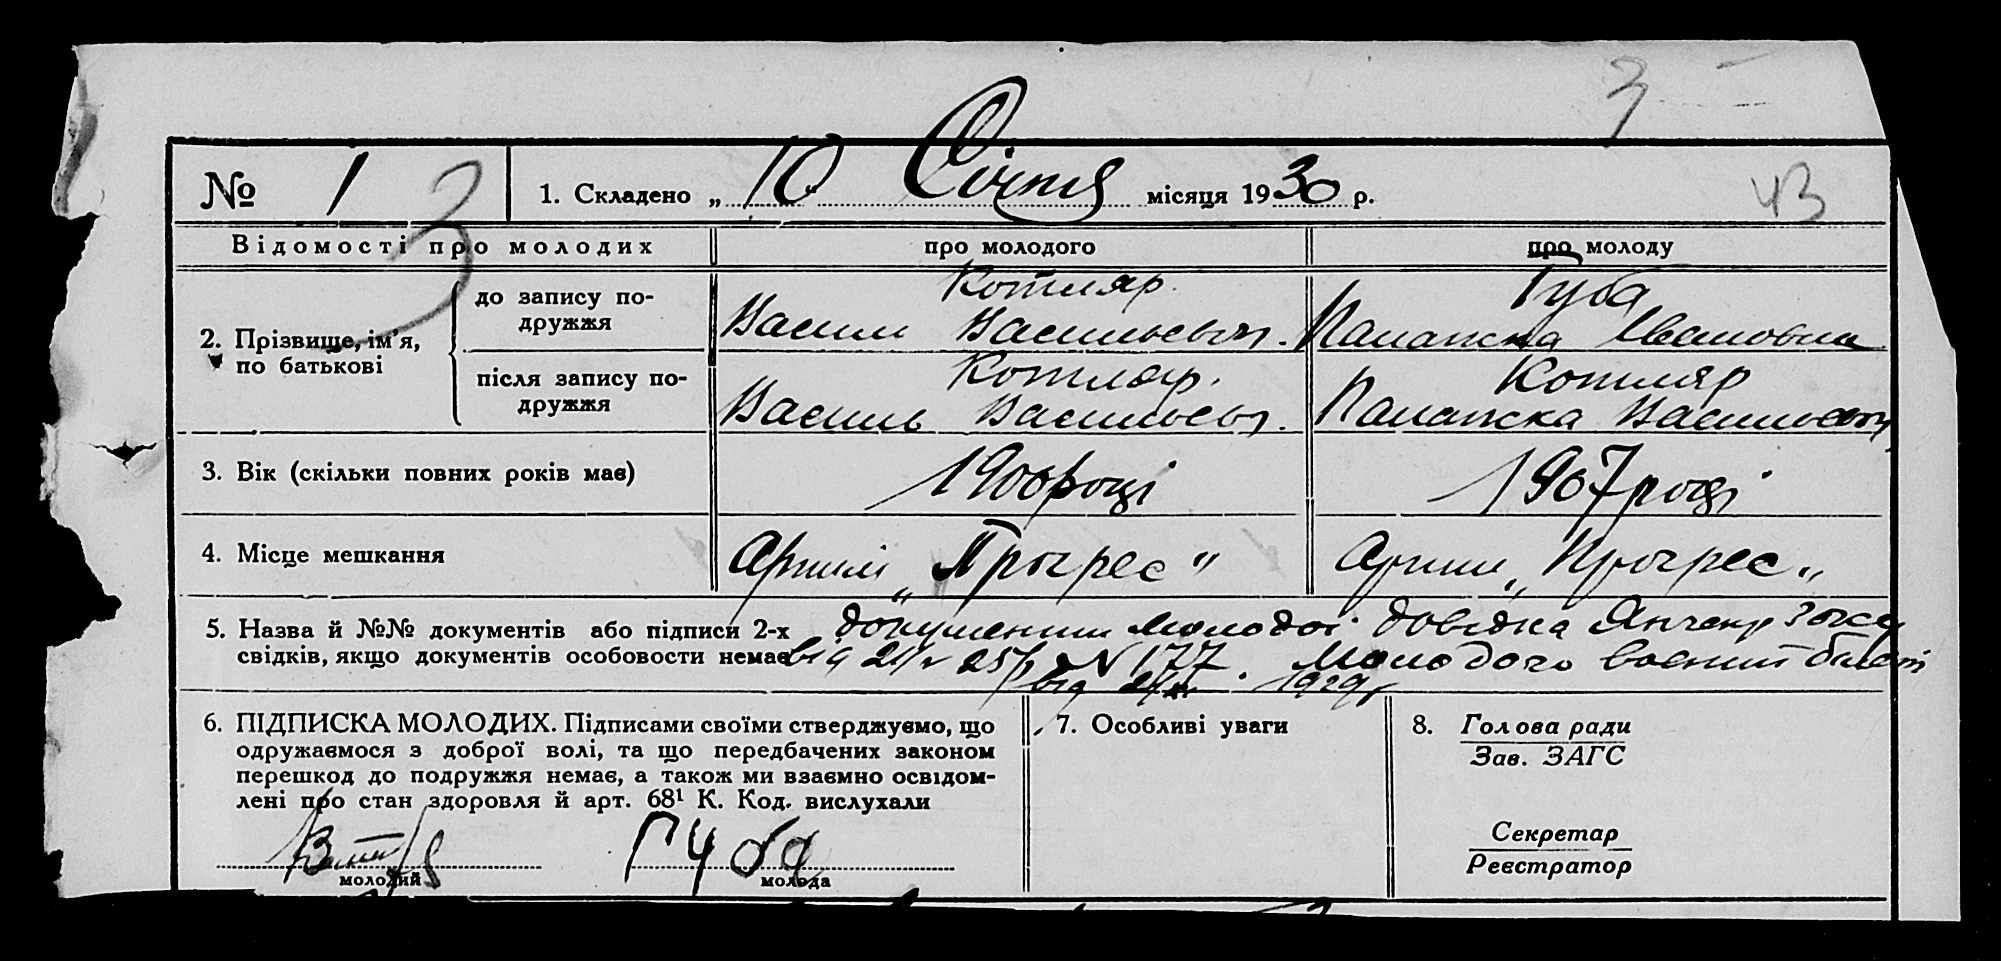 3
№ 1 3
1. Складено „ 10 " Січня місяця 1930 р.
43
Відомості про молодих
про молодого
про молоду
2. Прізвище, ім'я, по батькові
до запису подружжя
Котляр
Василь Васильевич.
Губа
Палажка Івановна
після запису подружжя
Котляр.
Василь Васильевич.
Котляр
Палажка
3. Вік (скільки повних років має)
1906 році
1907 році
4. Місце мешкання
Артілі „Прогрес"
Артіли „Прогрес"
5. Назва й №№ документів або підписи 2-х
свідків, якщо документів особовости немає
документи молодої довідка
від N 177. Молодого воєнний білєт
від 1929 р
6. ПІДПИСКА МОЛОДИХ. Підписами своїми стверджуємо, що
одружаємося з доброї волі, та що передбачених законом
перешкод до подружжя немає, а також ми взаємно освідом-
лені про стан здоровля й арт. 68¹ К. Код. вислухали
молодий
Губа
молода
7. Особливі уваги
8. Голова ради
Зав. ЗАГС
Секретар
Реєстратор